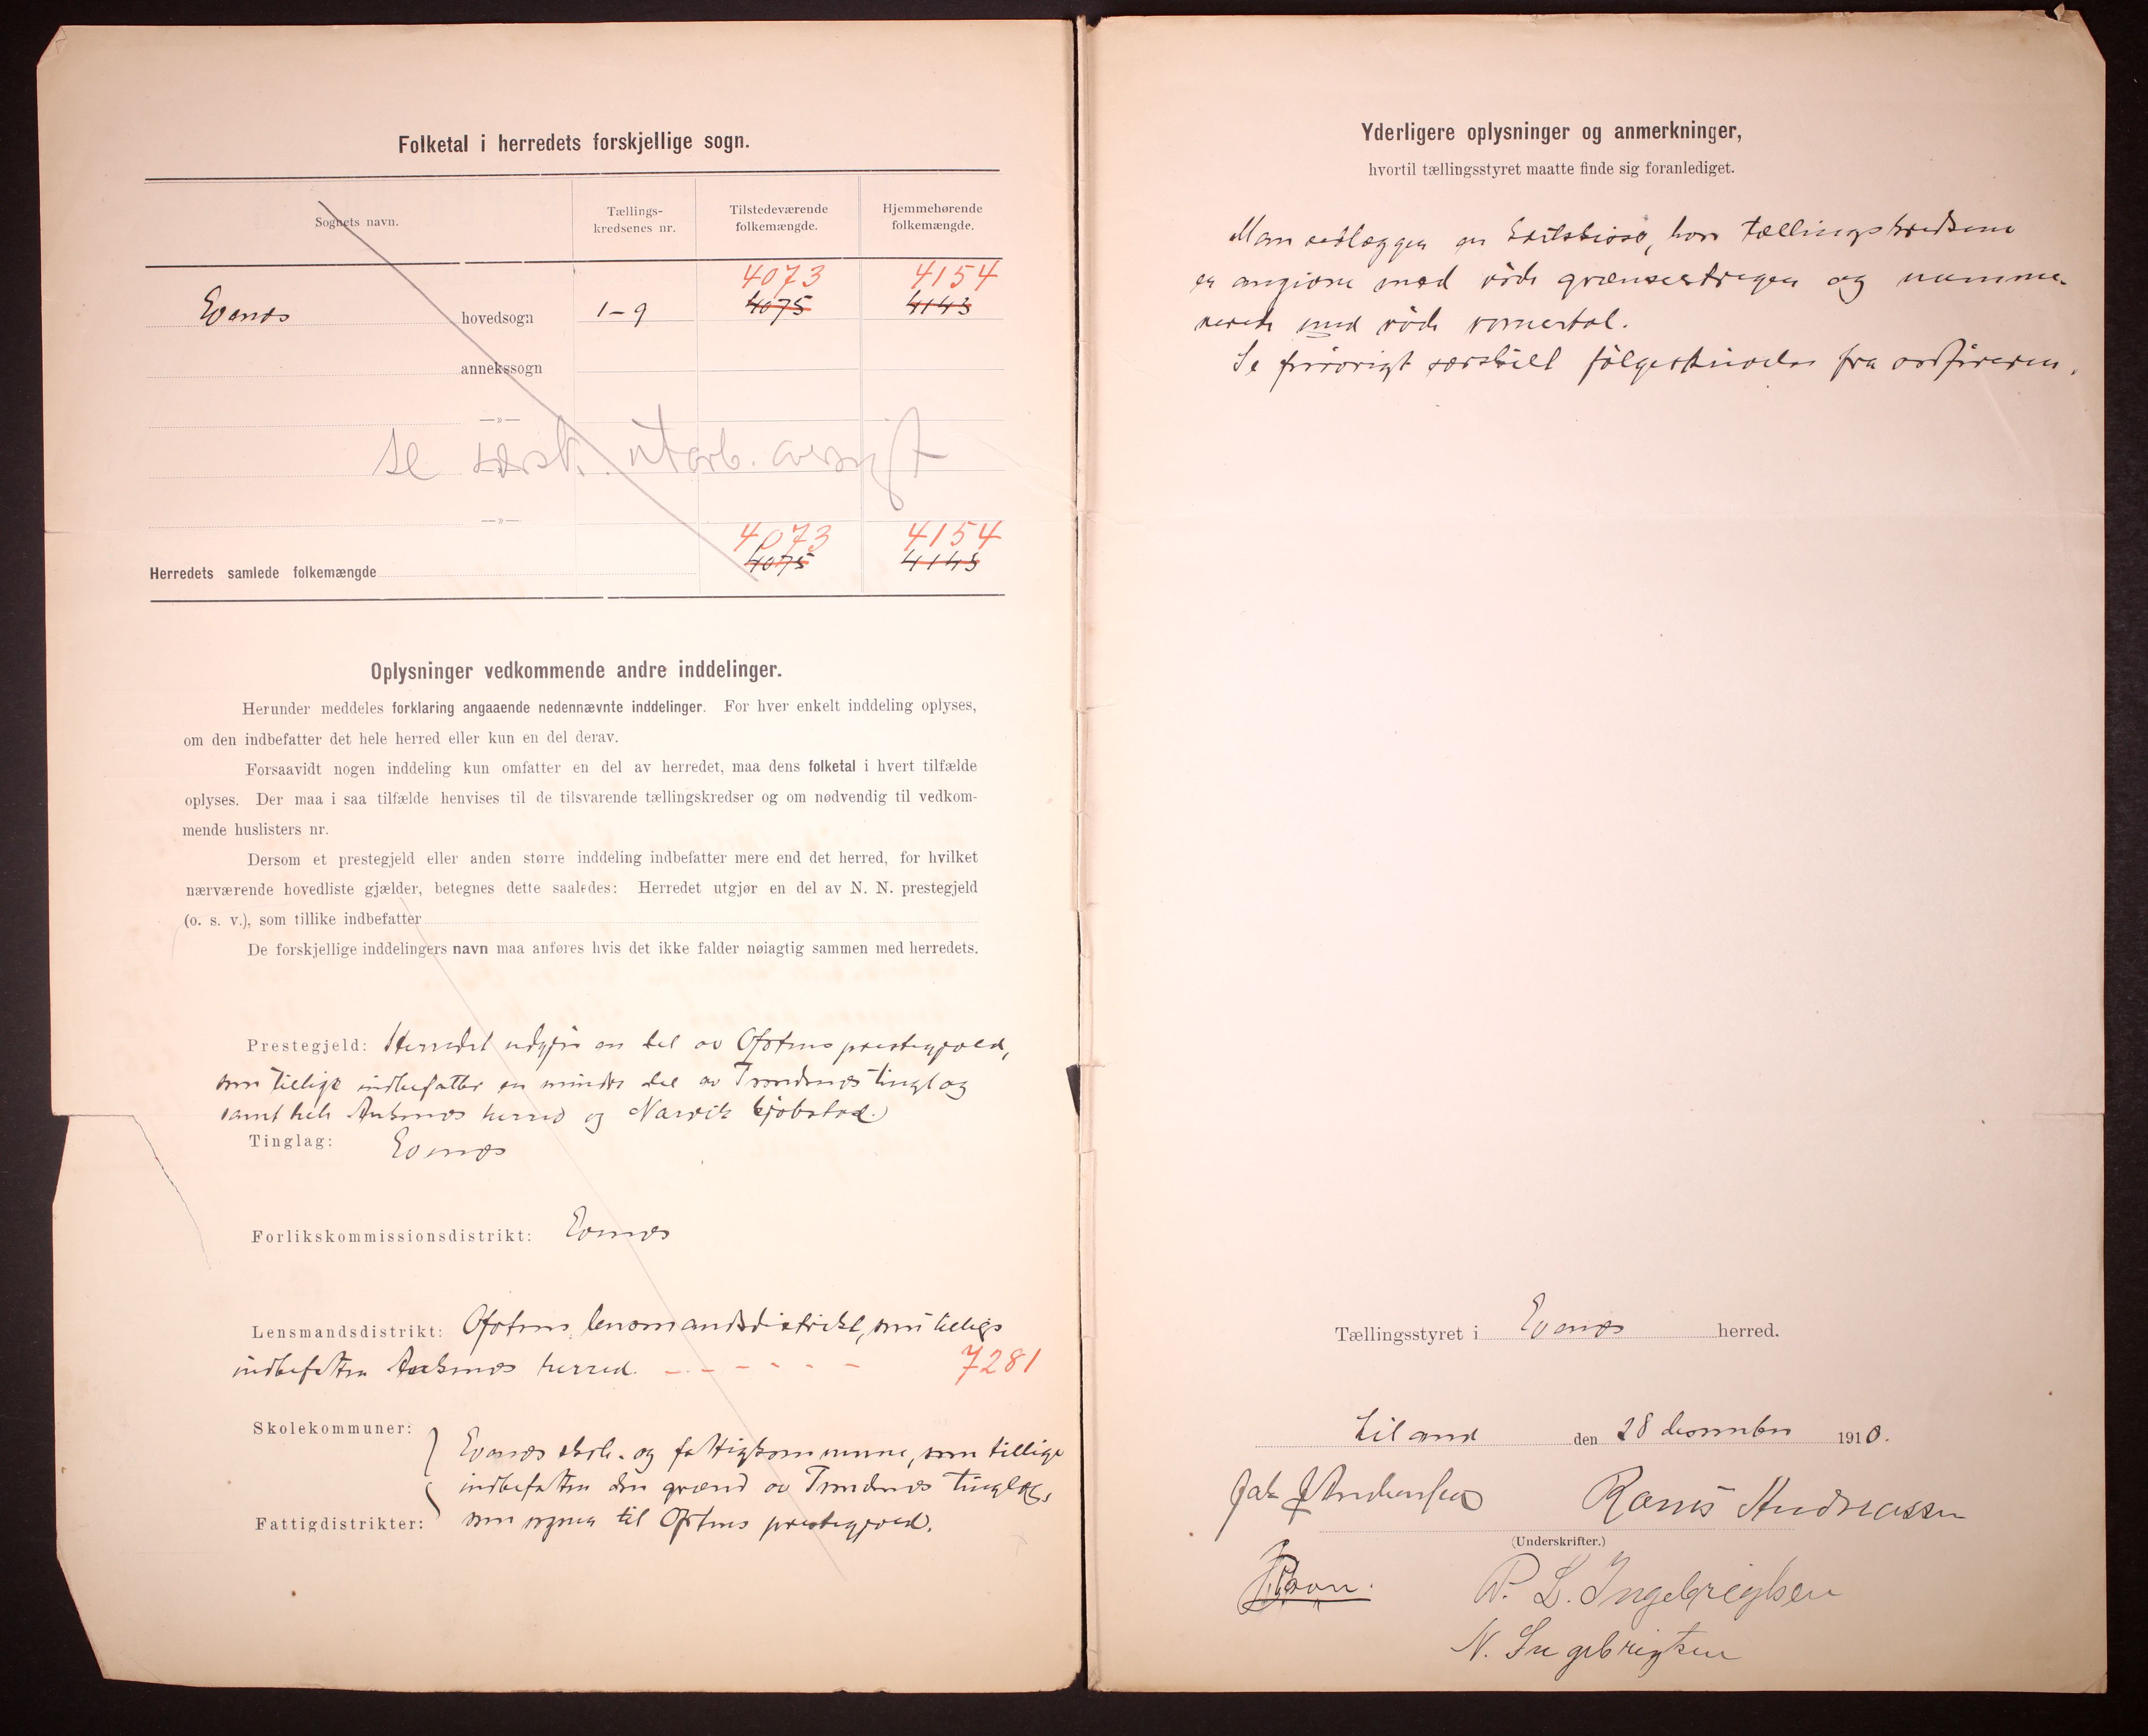 Folketal i herredets forskjellige sogn.
Sognets navn.
Tællings-
kredsenes nr.
Tilstedeværende
folkemængde.
Hjemmehørende
folkemængde.
4073
4154
Evenes
hovedsogn
1-9
4075
4143
annekssogn
—»—
se særsk. utarb. oversigt
—»—
4073
4154
Herredets samlede folkemængde
4075
4143
Oplysninger vedkommende andre inddelinger.
Herunder meddeles forklaring angaaende nedennævnte inddelinger. For hver enkelt inddeling oplyses,
om den indbefatter det hele herred eller kun en del derav.
Forsaavidt nogen inddeling kun omfatter en del av herredet, maa dens folketal i hvert tilfælde
oplyses. Der maa i saa tilfælde henvises til de tilsvarende tællingskredser og om nødvendig til vedkom-
mende huslisters nr.
Dersom et prestegjeld eller anden større inddeling indbefatter mere end det herred, for hvilket
nærværende hovedliste gjælder, betegnes dette saaledes: Herredet utgjør en del av N. N. prestegjeld
(o. s. v.), som tillike indbefatter
De forskjellige inddelingers navn maa anføres hvis det ikke falder nøiagtig sammen med herredets.
Prestegjeld: Herredet udgjør en del av Ofotens prestegjeld,
som tillige indbefatter en mindre del av Trondenes tinglag
samt hele Ankenes herred og Narvik kjøbstad.
Tinglag: Evenes
Forlikskommissionsdistrikt: Evenes
Lensmandsdistrikt: Ofotens lensmandsdistrikt, som tillige
indbefatter Ankenes herred. - - - - - - 7281
Skolekommuner:
Evenes skole- og fattigkommune, som tillige
indbefatter den grænd av Trondenes tinglag,
Fattigdistrikter: som sogner til Ofotens prestegjeld.
Yderligere oplysninger og anmerkninger,
hvortil tællingsstyret maatte finde sig foranlediget.
Man vedlægger en kartskisse, hvor tællingskredsene
er angivne med røde grænsestreger og numme-
rerede med røde romertal.
Se forøvrigt særskilt følgeskrivelse fra ordføreren.
Tællingsstyret i Evenes herred.
Liland den 28 desember 1910.
Rasmus Andreassen
(Underskrifter.)
P. L. Ingebrigtsen
N. Ingebrigtsen